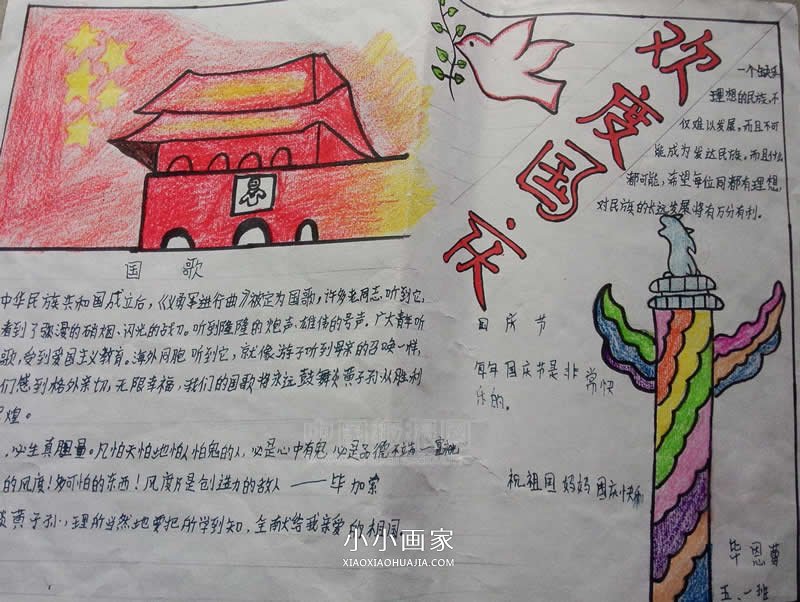 欢度国庆
一个缺乏
理想的民族,不
仅难以发展,而且不可
能成为发达民族,而且什么
都可能,希望每位同都有理想,
对民族的长远发展将有万分有利。
国 歌
中华民族共和国成立后,《义勇军进行曲》被定为国歌,许多老同志,听到它,
看到了弥漫的硝烟、闪光的战刀。听到隆隆的炮声、雄伟的号声。广大青年听
歌,受到爱国主义教育。海外同胞 听到它,就像游子听到母亲的召唤一样,
们感到格外亲切,无限幸福,我们的国歌将永远鼓舞炎黄子孙从胜利
煌。
,必生真胆量。凡怕天怕地怕人怕鬼的人,必是心中有鬼,必是品德不端
的风度!多可怕的东西!风度乃是创造力的敌人 ——毕加索
炎黄子孙,理所当然地要把所学到知,全献给我亲爱的祖国。
国 庆 节
每年国庆节是非常快
乐的。
祝祖国妈妈国庆快乐
毕恩
五.一班
小小画家
XIAOXIAOHUAJIA.COM